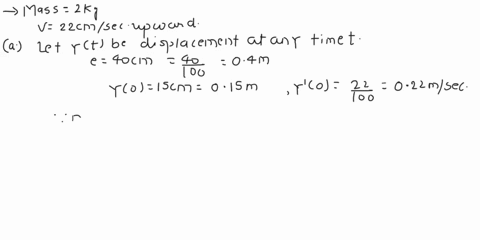 → Mass = 2Kg
V = 22cm/sec upward
(a) Let Y(t) be displacement at any time t.
e = 40cm = 40/100 = 0.4m
Y(0) = 15cm = 0.15m , Y'(0) = 22/100 = 0.22m/sec.
∵ n